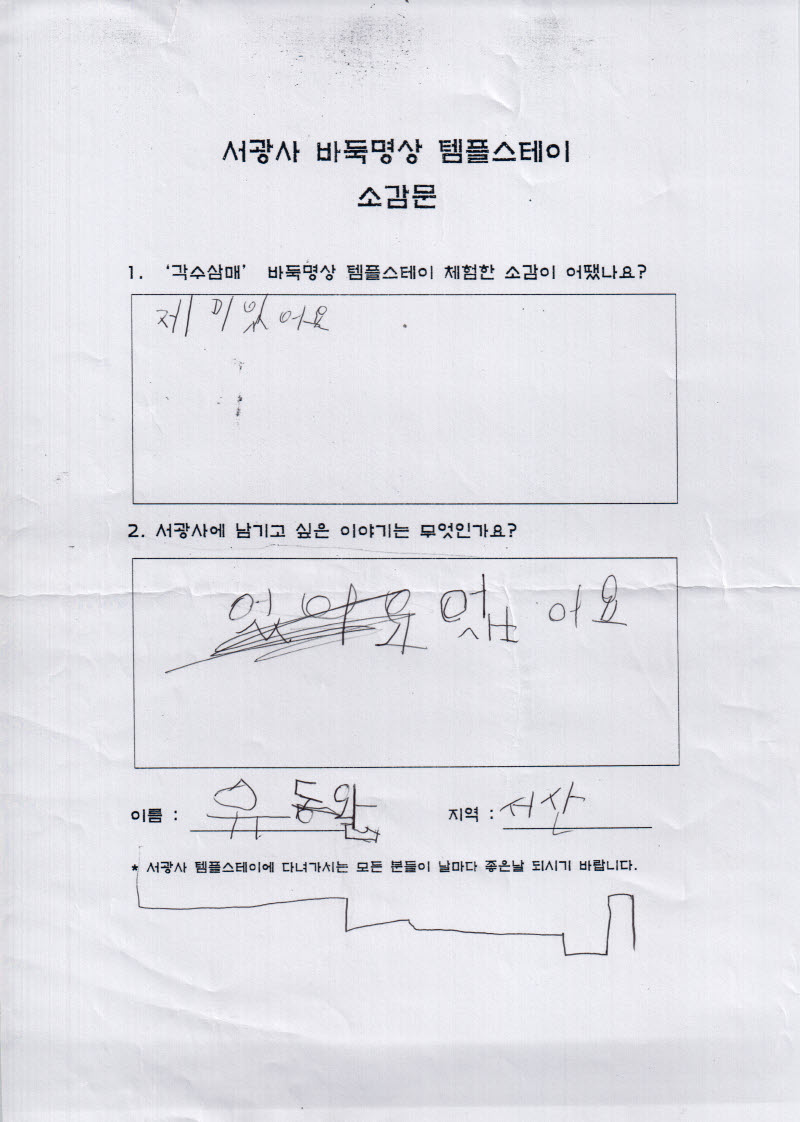 서광사 바둑명상 템플스테이
소감문
1. ‘각수삼매’ 바둑명상 템플스테이 체험한 소감이 어땠나요?
제미있어요
2. 서광사에 남기고 싶은 이야기는 무엇인가요?
이름 : 유동완 지역 : 서산
* 서광사 템플스테이에 다녀가시는 모든 분들이 날마다 좋은날 되시기 바랍니다.